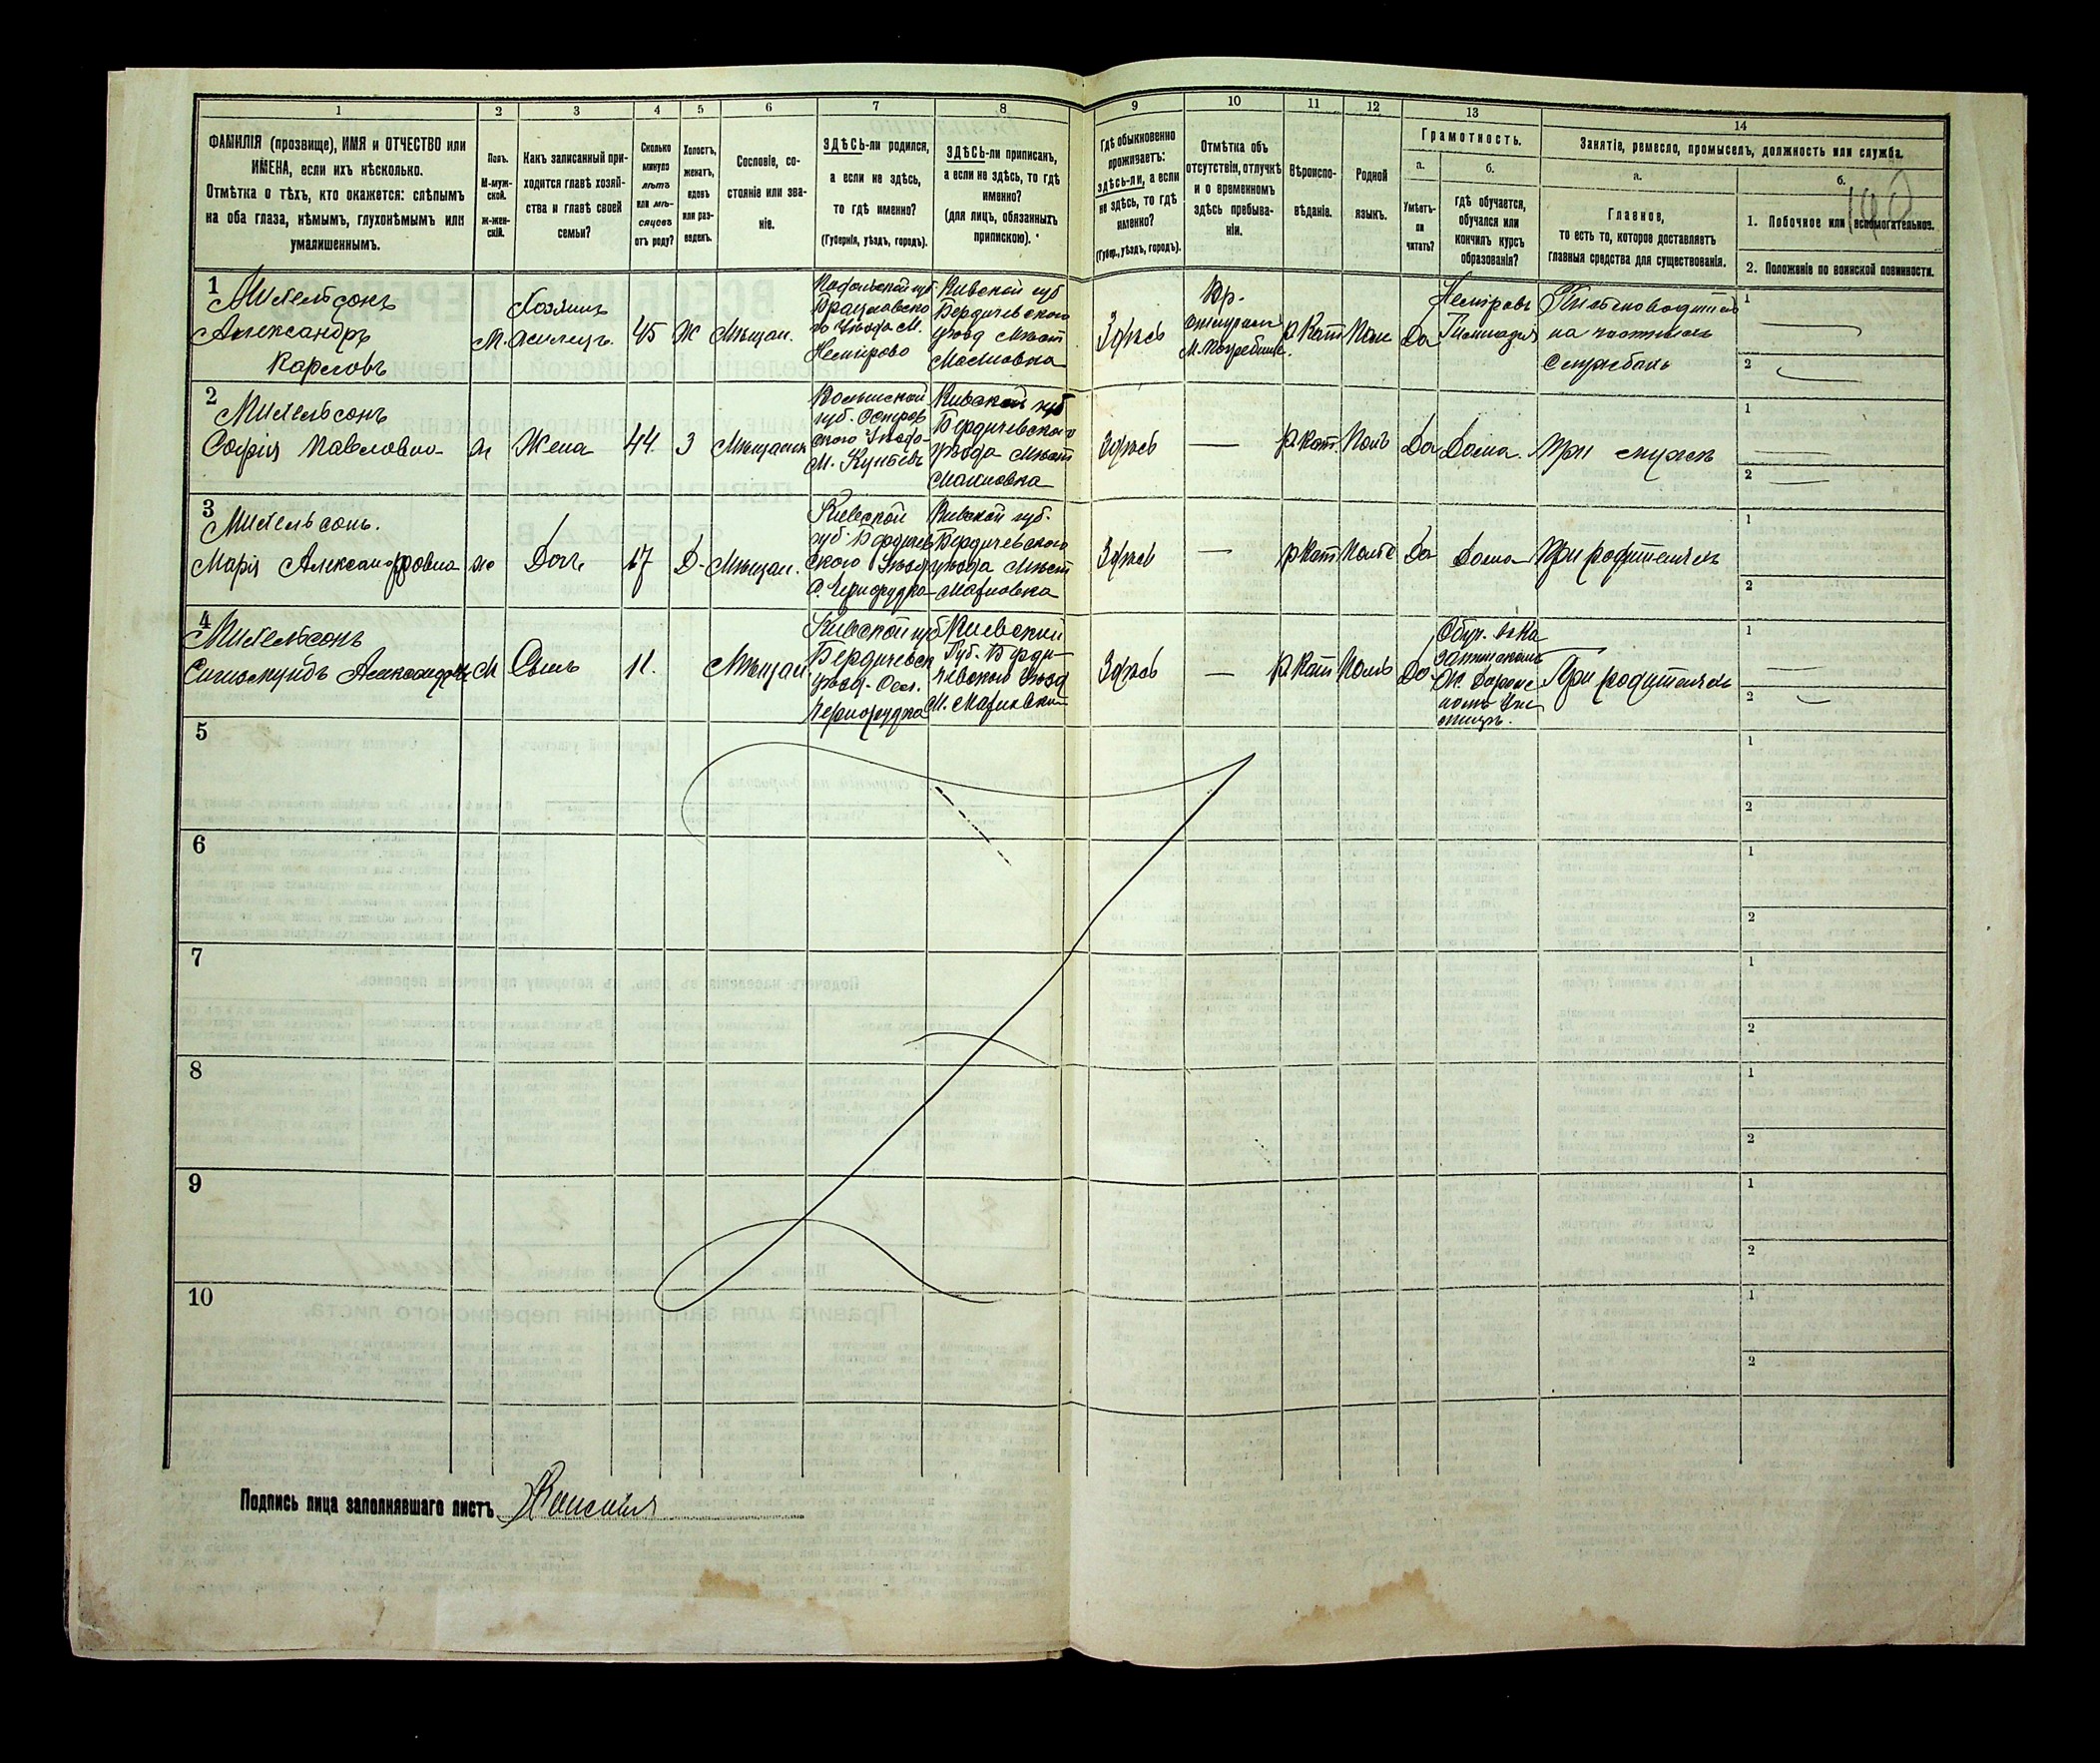 1
2
3
4
5
6
7
8
9
10
11
12
13
14
ФАМИЛІЯ (прозвище), ИМЯ и ОТЧЕСТВО или
ИМЕНА, если ихъ нѣсколько.
Отмѣтка о тѣхъ, кто окажется: слѣпымъ
на оба глаза, нѣмымъ, глухонѣмымъ или
умалишеннымъ.
Полъ.
М-муж-
ской.
ж-жен-
скій.
Какъ записанный при-
ходится главѣ хозяй-
ства и главѣ своей
семьи?
Сколько
минуло
лѣтъ
или мѣ-
сяцевъ
отъ роду?
Холостъ,
женатъ,
вдовъ
или раз-
веденъ.
Сословіе, со-
стояніе или зва-
ніе.
ЗДѢСЬ-ли родился,
а если не здѣсь,
то гдѣ именно?
(Губернія, уѣздъ, городъ).
ЗДѢСЬ-ли приписанъ,
а если не здѣсь, то гдѣ
именно?
(для лицъ, обязанныхъ
припискою).
Гдѣ обыкновенно
проживаетъ:
здѣсь-ли, а если
не здѣсь, то гдѣ
именно?
(Губер., уѣздъ, городъ).
Отмѣтка объ
отсутствіи, отлучкѣ
и о временномъ
здѣсь пребыва-
ніи.
Вѣроиспо-
вѣданіе.
Родной
языкъ.
Грамотность.
а.
Умѣетъ-
ли
читать?
б.
гдѣ обучается,
обучался или
кончилъ курсъ
образованія?
Занятіе, ремесло, промыселъ, должность или служба.
а.
Главное,
то есть то, которое доставляетъ
главныя средства для существованія.
б.
1. Побочное или вспомогательное.
2. Положеніе по воинской повинности.
1
Михельсонъ
Александръ
Карловъ
М.
Хозяинъ
45
Ж
Мѣщан.
Подольской губ
Брацлавско
го Уѣзда М.
Немірово
Кивской губ
Бердичевского
уѣзд Мѣст
Махновка
Здѣсь
Вр.
М. Погребище.
р Кат
Пол
Да
Неміровъ
Гимназія
на частныхъ
службахъ
1
2
2
Михельсонъ
Софія Павловно
Жена
44
З
Мѣщанск
Волынской
губ. Остров
ского Уѣзда
М. Кунѣвъ
Кивской губ
Бердичевского
уѣзда Мѣст
Махновка
Здѣсь
р. Кат.
Поль
Да
Дома.
При мужѣ
1
2
3
Михельсонъ.
Марія Александровна
Дочь
17
Д-
Мѣщан.
Кивской
губ. Бердичев
ского Уѣзд
с. Чернорудка
Кивской губ.
Бердичевского
уѣзда Мѣст
Махновка
Здѣсь
р Кат
Польс
Да
Дома
При родителяхъ
1
2
4
Михельсонъ
Сигизмундъ Александров
М
Сынъ
11.
Мѣщан.
Кивской губ
Бердичевск
уѣзд.
Чернорудка
Киевский
Губ. Берди-
чевского Уѣзд
М. Махновки
Здѣсь
р. Кат
Поль
Да
При родителяхъ
1
2
5
1
2
6
1
2
7
1
2
8
1
2
9
1
2
10
1
2
Подпись лица заполнявшаго листъ